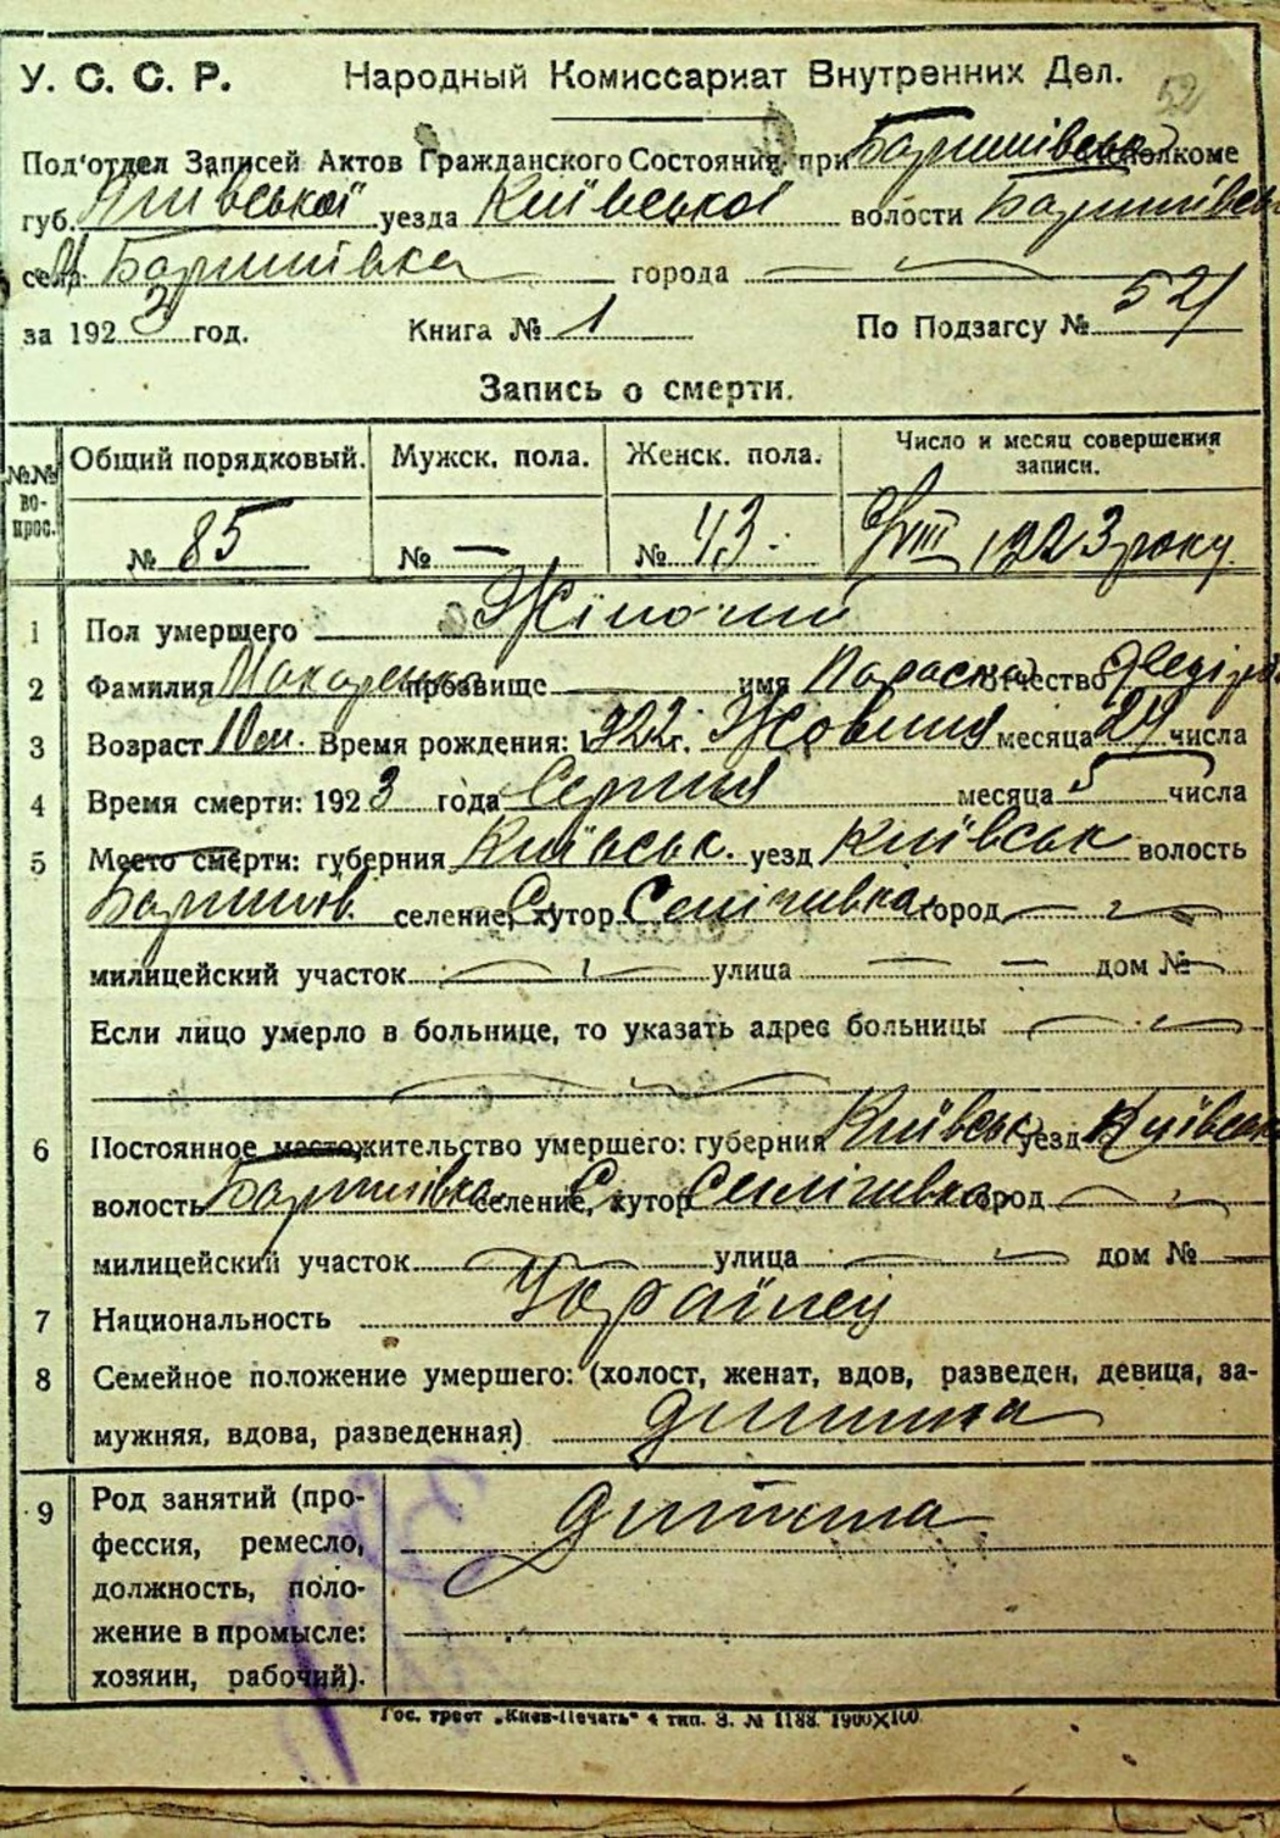 52
У. С. С. Р. Народный Комиссариат Внутренних Дел.
Под'отдел Записей Актов Гражданского Состояния при Баришівськ исполкоме
губ. Київської уезда Київської волости Баришівськ
села М. Баришівка города
за 1923 год. Книга № 1 По Подзагсу № 52
Запись о смерти.
№№ вопрос. Общий порядковый. Мужск. пола. Женск. пола. Число и месяц совершения записи.
№ 85 № — № 43 VIII 1923 року
1 Пол умершего Жіночий
2 Фамилия Макаренко прозвище имя Параска отчество
3 Возраст 10 м. Время рождения: 1922 г. Жовтня месяца 24 числа
4 Время смерти: 1923 года Серпня месяца 5 числа
5 Место смерти: губерния Київськ. уезд Київськ волость
Баришів. селение, хутор С. Селічивка город
милицейский участок улица дом №
Если лицо умерло в больнице, то указать адрес больницы
6 Постоянное местожительство умершего: губерния Київськ уезд Київськ
волость Баришівка селение, хутор С. Селічивка город
милицейский участок улица дом №
7 Национальность Українец
8 Семейное положение умершего: (холост, женат, вдов, разведен, девица, за-
мужняя, вдова, разведенная) дитина
9 Род занятий (про- дитина
фессия, ремесло,
должность, поло-
жение в промысле:
хозяин, рабочий).
Гос. трест „Киев-Печать" 4 тип. З. № 1188. 1900×100.